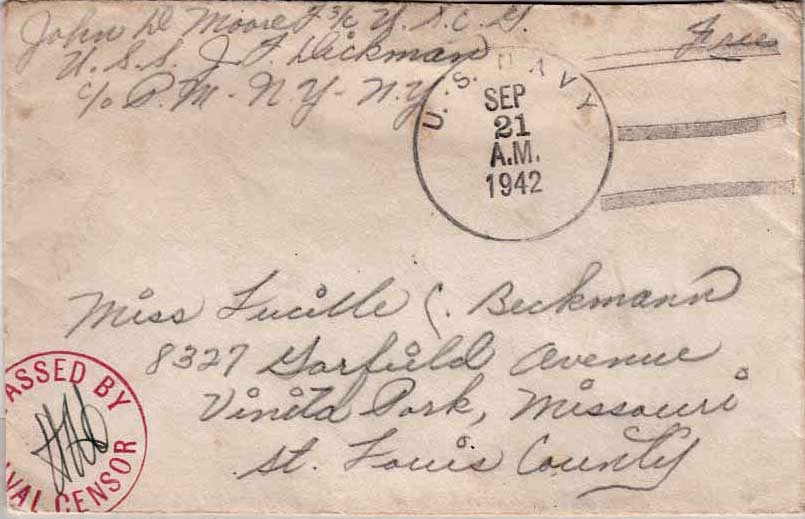 John D Moore F 3/c U.S.C.G.
U.S.S. J T Dickman
c/o P.M. - N.Y - N.Y
Free
U.S. NAVY
SEP
21
A.M.
1942
Miss Lucille C. Beckmann
8327 Garfield Avenue
Vinita Park, Missouri
St. Louis County
PASSED BY
NAVAL CENSOR